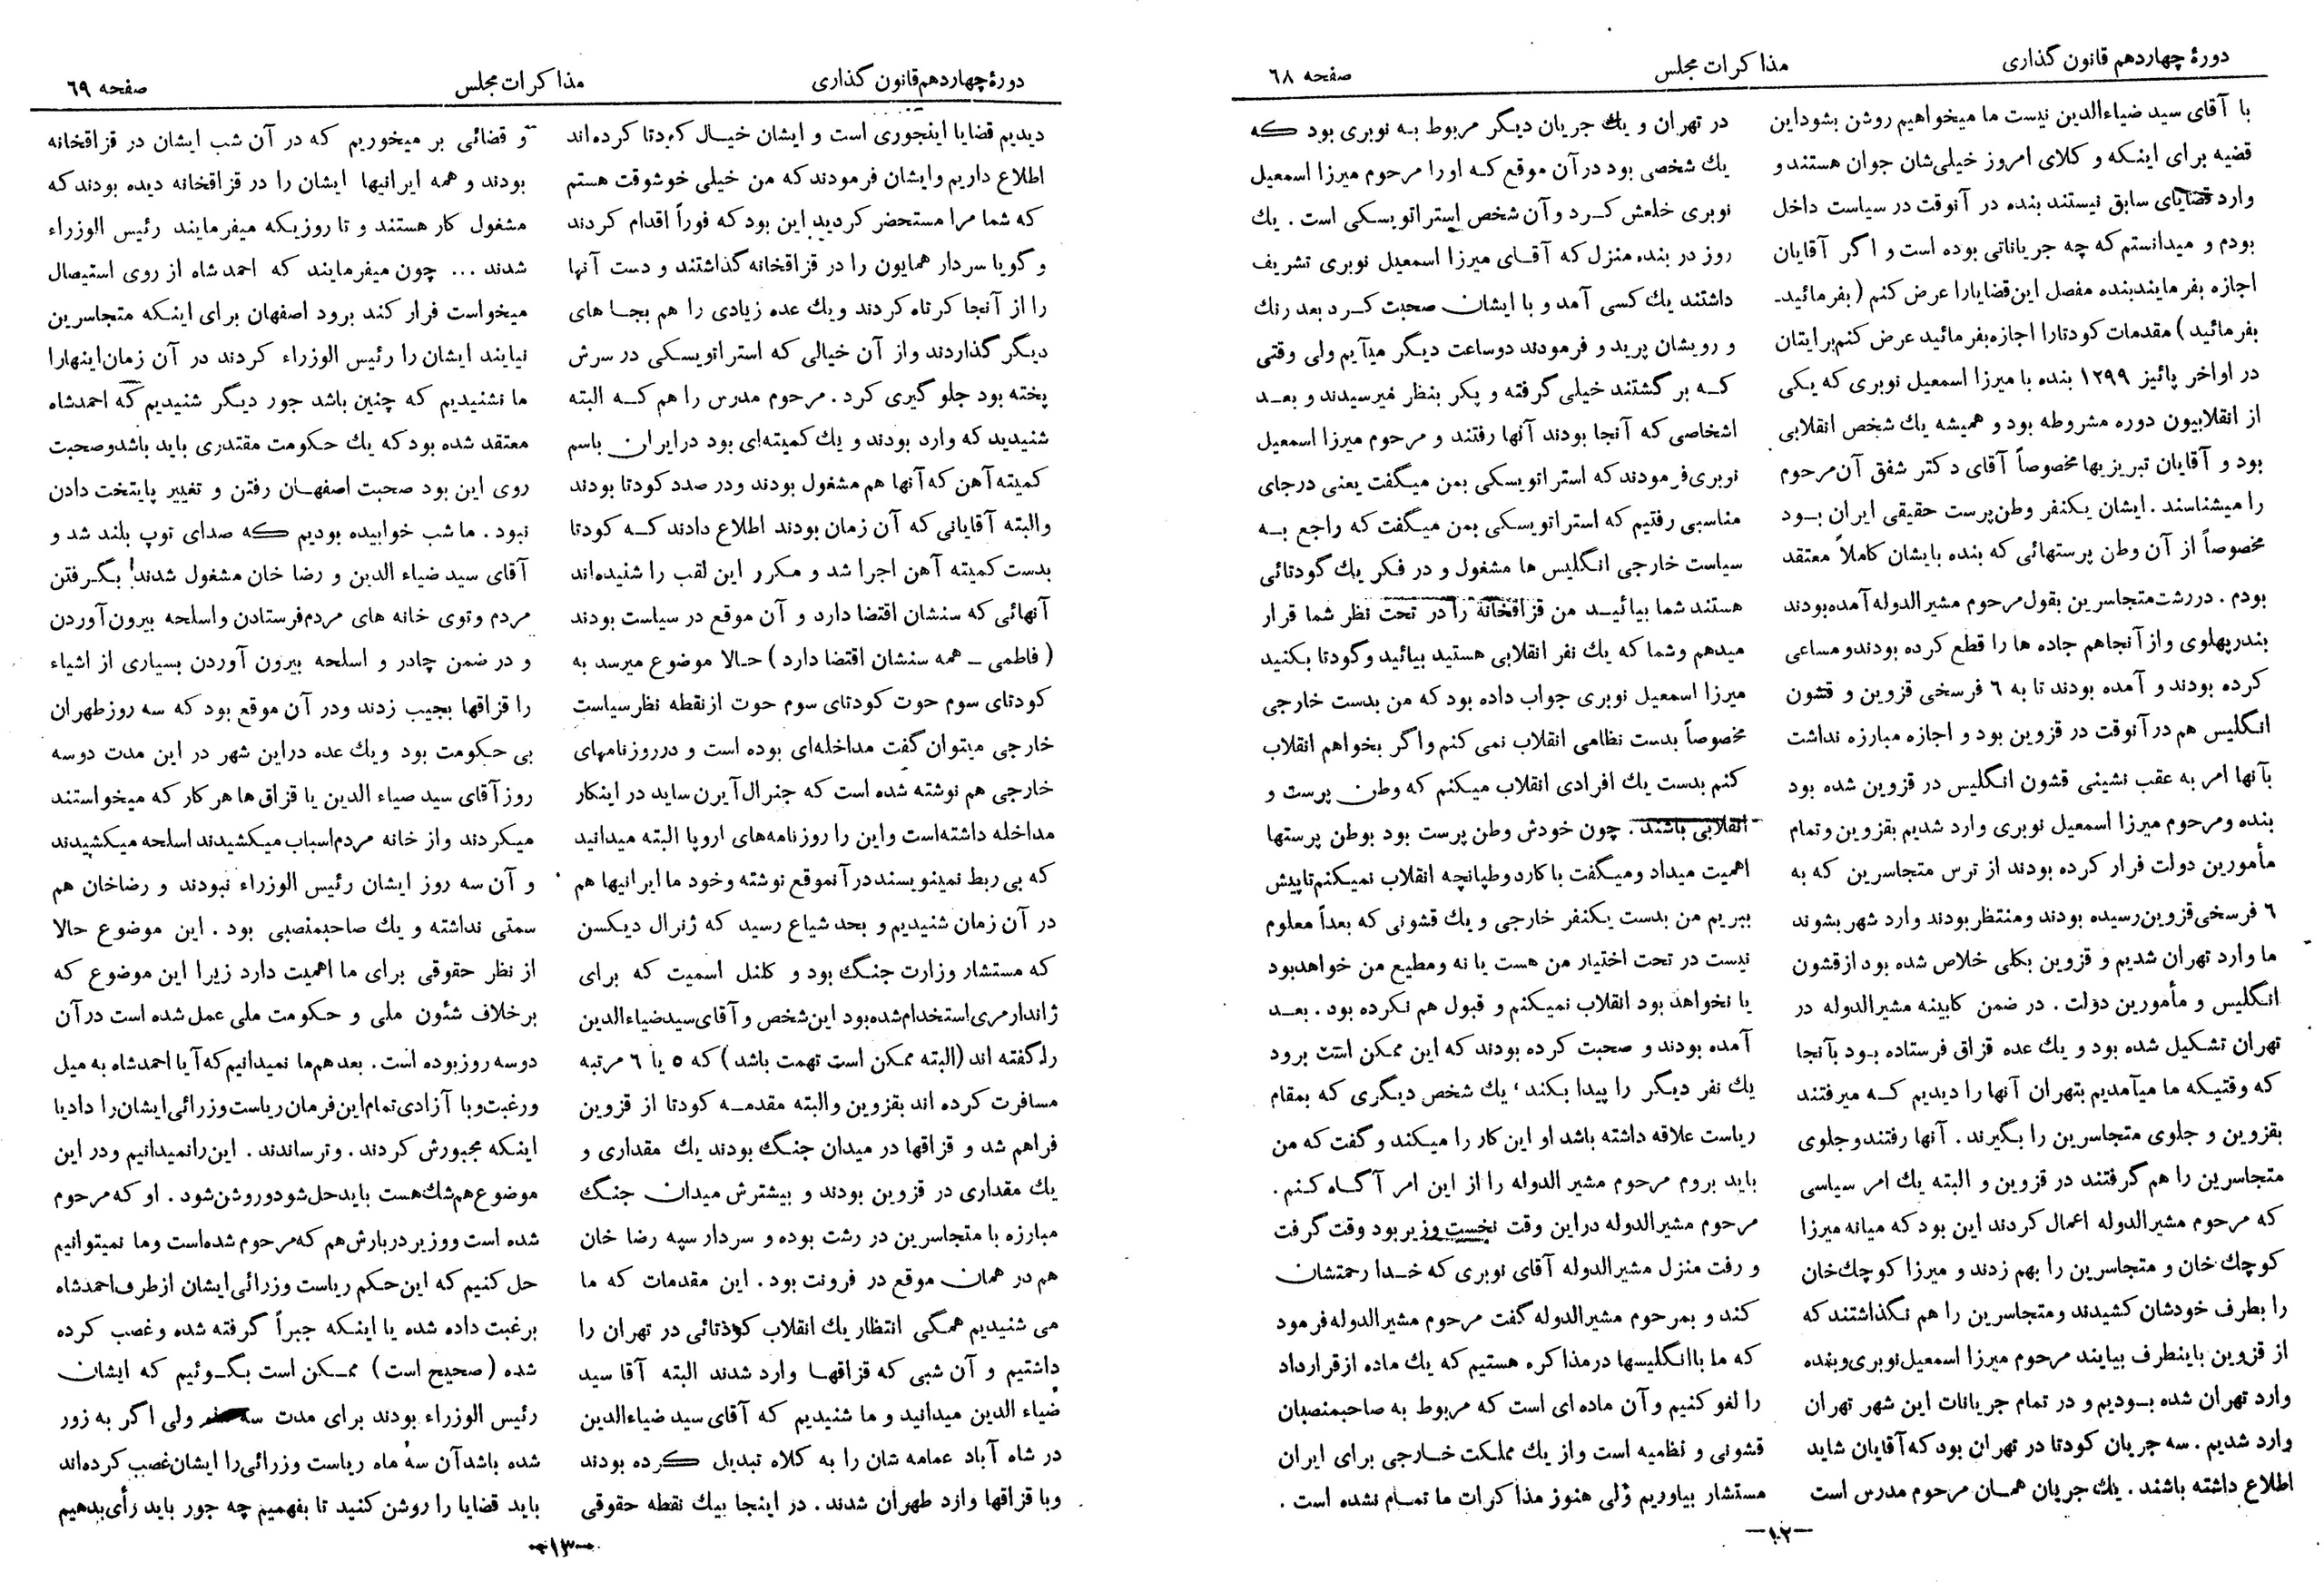 دورهٔ چهاردهم قانون گذاری
مذاکرات مجلس
صفحه ٦٨
با آقای سید ضیاءالدین نیست ما میخواهیم روشن بشوداین
قضیه برای اینکه وکلای امروز خیلی‌شان جوان هستند و
وارد قضایای سابق نیستند بنده در آنوقت در سیاست داخل
بودم و میدانستم که چه جریاناتی بوده است و اگر آقایان
اجازه بفرمایندبنده مفصل این‌قضایارا عرض کنم (بفرمائید-
بفرمائید) مقدمات کودتارا اجازه‌بفرمائید عرض کنم‌برایتان
در اواخر پائیز ۱۲۹۹ بنده با میرزا اسمعیل نوبری که یکی
از انقلابیون دوره مشروطه بود و همیشه یك شخص انقلابی
بود و آقایان تبریزیها مخصوصاً آقای دکتر شفق آن‌مرحوم
را میشناسند. ایشان یکنفر وطن‌پرست حقیقی ایران بود
مخصوصاً از آن وطن پرستهائی که بنده بایشان کاملاً معتقد
بودم. دررشت‌متجاسرین بقول مرحوم مشیرالدوله آمده‌بودند
بندرپهلوی و از آنجاهم جاده ها را قطع کرده بودندومساعی
کرده بودند و آمده بودند تا به ٦ فرسخی قزوین و قشون
انگلیس هم درآنوقت در قزوین بود و اجازه مبارزه نداشت
بآنها امر به عقب نشینی قشون انگلیس در قزوین شده بود
بنده ومرحوم میرزا اسمعیل نوبری وارد شدیم بقزوین وتمام
مأمورین دولت فرار کرده بودند از ترس متجاسرین که به
٦ فرسخی‌قزوین‌رسیده بودند ومنتظربودند وارد شهربشوند
ما وارد تهران شدیم و قزوین بکلی خلاص شده بود ازقشون
انگلیس و مأمورین دولت. در ضمن کابینه مشیرالدوله در
تهران تشکیل شده بود و یك عده قزاق فرستاده بود بآنجا
که وقتیکه ما میآمدیم بتهران آنها را دیدیم که میرفتند
بقزوین و جلوی متجاسرین را بگیرند. آنها رفتندوجلوی
متجاسرین را هم گرفتند در قزوین و البته یك امر سیاسی
که مرحوم مشیرالدوله اعمال کردند این بود که میانه میرزا
کوچك خان و متجاسرین را بهم زدند و میرزا کوچك‌خان
را بطرف خودشان کشیدند ومتجاسرین را هم نگذاشتند که
از قزوین باینطرف بیایند مرحوم میرزا اسمعیل‌نوبری‌وبنده
وارد تهران شده بودیم و در تمام جریانات این شهر تهران
وارد شدیم. سه جریان کودتا در تهران بود که‌آقایان شاید
اطلاع داشته باشند. یك جریان همان مرحوم مدرس است
در تهران و یك جریان دیگر مربوط به نوبری بود که
یك شخصی بود درآن موقع که اورا مرحوم میرزا اسمعیل
نوبری خلعش کرد وآن شخص استراتویسکی است. یك
روز در بنده منزل که آقای میرزا اسمعیل نوبری تشریف
داشتند یك کسی آمد و با ایشان صحبت کرد بعد رنك
و رویشان پرید و فرمودند دوساعت دیگر میآیم ولی وقتی
که برگشتند خیلی گرفته و پکر بنظر میرسیدند و بعد
اشخاصی که آنجا بودند آنها رفتند و مرحوم میرزا اسمعیل
نوبری‌فرمودند که استراتویسکی بمن میگفت یعنی درجای
مناسبی رفتیم که استراتویسکی بمن میگفت که راجع به
سیاست خارجی انگلیس ها مشغول و در فکر یك گودتائی
هستند شما بیائید من قزاقخانه را در تحت نظر شما قرار
میدهم وشما که یك نفر انقلابی هستید بیائید وکودتا بکنید
میرزا اسمعیل نوبری جواب داده بود که من بدست خارجی
مخصوصاً بدست نظامی انقلاب نمی کنم واگر بخواهم انقلاب
کنم بدست یك افرادی انقلاب میکنم که وطن پرست و
انقلابی باشند. چون خودش وطن پرست بود بوطن پرستها
اهمیت میداد ومیگفت باکارد وطپانچه انقلاب نمیکنم‌تاپیش
ببریم من بدست یکنفر خارجی و یك قشونی که بعداً معلوم
نیست در تحت اختیار من هست یا نه ومطیع من خواهدبود
یا نخواهد بود انقلاب نمیکنم و قبول هم نکرده بود. بعد
آمده بودند و صحبت کرده بودند که این ممکن است برود
یك نفر دیگر را پیدا بکند، یك شخص دیگری که بمقام
ریاست علاقه داشته باشد او این کار را میکند و گفت که من
باید بروم مرحوم مشیرالدوله را از این امر آگاه کنم.
مرحوم مشیرالدوله دراین وقت نخست وزیر بود وقت گرفت
و رفت منزل مشیرالدوله آقای نوبری که خدا رحمتشان
کند و بمرحوم مشیرالدوله گفت مرحوم مشیرالدوله‌فرمود
که ما باانگلیسها درمذاکره هستیم که یك ماده ازقرارداد
را لغو کنیم وآن ماده ای است که مربوط به صاحبمنصبان
قشونی و نظمیه است واز یك مملکت خارجی برای ایران
مستشار بیاوریم ولی هنوز مذاکرات ما تمام نشده است.
—۱۲—
دورهٔ چهاردهم قانون گذاری
مذاکرات مجلس
صفحه ٦٩
دیدیم قضایا اینجوری است و ایشان خیال کودتا کرده‌اند
اطلاع داریم وایشان فرمودند که من خیلی خوشوقت هستم
که شما مرا مستحضر کردید این بود که فوراً اقدام کردند
وگویا سردار همایون را در قزاقخانه گذاشتند و دست آنها
را از آنجا کوتاه کردند ویك عده زیادی را هم بجا های
دیگر گذاردند واز آن خیالی که استراتویسکی در سرش
پخته بود جلوگیری کرد. مرحوم مدرس را هم که البته
شنیدید که وارد بودند و یك کمیته‌ای بود درایران باسم
کمیته آهن که آنها هم مشغول بودند ودر صدد کودتا بودند
والبته آقایانی که آن زمان بودند اطلاع دادند که کودتا
بدست کمیته آهن اجرا شد و مکرر این لقب را شنیده‌اند
آنهائی که سنشان اقتضا دارد و آن موقع در سیاست بودند
(فاطمی - همه سنشان اقتضا دارد) حالا موضوع میرسد به
کودتای سوم حوت کودتای سوم حوت ازنقطه نظر سیاست
خارجی میتوان گفت مداخله‌ای بوده است و درروزنامهای
خارجی هم نوشته شده است که جنرال آیرن ساید در اینکار
مداخله داشته‌است واین را روزنامه‌های اروپا البته میدانید
که بی ربط نمینویسند درآنموقع نوشته وخود ما ایرانیها هم
در آن زمان شنیدیم و بحد شیاع رسید که ژنرال دیکسن
که مستشار وزارت جنگ بود و کلنل اسمیت که برای
ژاندارمری‌استخدام‌شده‌بود این‌شخص و آقای سید ضیاءالدین
را گفته اند (البته ممکن است تهمت باشد) که ۵ یا ٦ مرتبه
مسافرت کرده اند بقزوین والبته مقدمه کودتا از قزوین
فراهم شد و قزاقها در میدان جنگ بودند یك مقداری و
یك مقداری در قزوین بودند و بیشترش میدان جنگ
مبارزه با متجاسرین در رشت بوده و سردار سپه رضا خان
هم در همان موقع در فرونت بود. این مقدمات که ما
می شنیدیم همگی انتظار یك انقلاب کودتائی در تهران را
داشتیم و آن شبی که قزاقها وارد شدند البته آقا سید
ضیاء الدین میدانید و ما شنیدیم که آقای سید ضیاءالدین
در شاه آباد عمامه شان را به کلاه تبدیل کرده بودند
وبا قزاقها وارد طهران شدند. در اینجا بیك نقطه حقوقی
و قضائی بر میخوریم که در آن شب ایشان در قزاقخانه
بودند و همه ایرانیها ایشان را در قزاقخانه دیده بودند که
مشغول کار هستند و تا روزیکه میفرمایند رئیس الوزراء
شدند ... چون میفرمایند که احمد شاه از روی استیصال
میخواست فرار کند برود اصفهان برای اینکه متجاسرین
نیایند ایشان را رئیس الوزراء کردند در آن زمان‌اینهارا
ما نشنیدیم که چنین باشد جور دیگر شنیدیم که احمدشاه
معتقد شده بود که یك حکومت مقتدری باید باشدوصحبت
روی این بود صحبت اصفهان رفتن و تغییر پایتخت دادن
نبود. ما شب خوابیده بودیم که صدای توپ بلند شد و
آقای سید ضیاء الدین و رضا خان مشغول شدند بگرفتن
مردم وتوی خانه های مردم‌فرستادن واسلحه بیرون‌آوردن
و در ضمن چادر و اسلحه بیرون آوردن بسیاری از اشیاء
را قزاقها بجیب زدند ودر آن موقع بود که سه روز طهران
بی حکومت بود ویك عده دراین شهر در این مدت دوسه
روز آقای سید ضیاء الدین با قزاق ها هرکار که میخواستند
میکردند واز خانه مردم‌اسباب میکشیدند اسلحه میکشیدند
و آن سه روز ایشان رئیس الوزراء نبودند و رضاخان هم
سمتی نداشته و یك صاحبمنصبی بود. این موضوع حالا
از نظر حقوقی برای ما اهمیت دارد زیرا این موضوع که
برخلاف شئون ملی و حکومت ملی عمل شده است درآن
دوسه روزبوده است. بعدهم‌ما نمیدانیم‌که‌آیا احمدشاه به میل
ورغبت‌وبا آزادی‌تمام‌این‌فرمان ریاست‌وزرائی‌ایشان‌را دادیا
اینکه مجبورش کردند. وترساندند. این‌رانمیدانیم ودر این
موضوع‌هم‌شك‌هست بایدحل‌شودوروشن‌شود. او که‌مرحوم
شده است ووزیردربارش‌هم که‌مرحوم شده‌است وما نمیتوانیم
حل کنیم که این‌حکم ریاست وزرائی‌ایشان ازطرف‌احمدشاه
برغبت داده شده یا اینکه جبراً گرفته شده وغصب کرده
شده (صحیح است) ممکن است بگوئیم که ایشان
رئیس الوزراء بودند برای مدت سه ولی اگر به زور
شده باشدآن سه ماه ریاست وزرائی‌را ایشان‌غصب کرده‌اند
باید قضایا را روشن کنید تا بفهمیم چه جور باید رأی‌بدهیم
—۱۳—